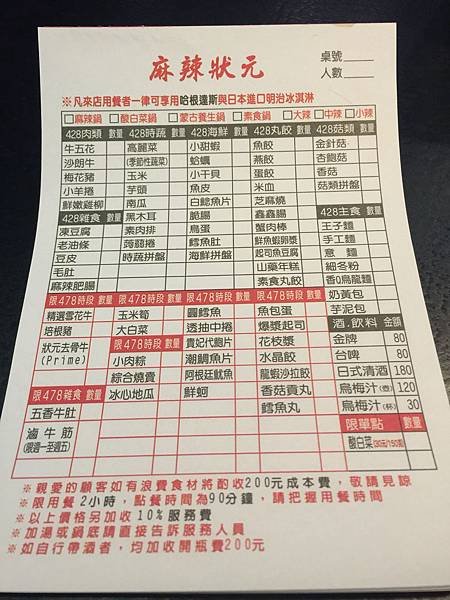 麻辣狀元
桌號
人數
※凡來店用餐者一律可享用哈根達斯與日本進口明治冰淇淋
□麻辣鍋 □酸白菜鍋 □蒙古養生鍋 □素食鍋 □大辣 □中辣 □小辣
428肉類 數量 428時蔬 數量 428海鮮 數量 428丸餃 數量 428菇類 數量
牛五花 高麗菜 小甜蝦 魚餃 金針菇
沙朗牛 (季節性蔬菜) 蛤蠣 燕餃 杏鮑菇
梅花豬 玉米 小干貝 蛋餃 香菇
小羊捲 芋頭 魚皮 米血 菇類拼盤
鮮嫩雞柳 南瓜 白鯰魚片 芝麻燒
428雜食 數量 黑木耳 脆腸 鑫鑫腸 428主食 數量
凍豆腐 素肉排 鳥蛋 蟹肉棒 王子麵
老油條 蒟蒻捲 鱈魚肚 鮮魚蝦卵漿 手工麵
豆皮 時蔬拼盤 海鮮拼盤 起司魚豆腐 意麵
毛肚 山藥年糕 細冬粉
麻辣肥腸 素食丸餃 香Q烏龍麵
限478時段 限478時段 數量 限478時段 數量 限478時段 數量 奶黃包
精選雲花牛 玉米筍 圓鱈魚 魚包蛋 芋泥包
培根豬 大白菜 透抽中捲 爆漿起司 酒.飲料 金額
狀元去骨牛 限478時段 數量 貴妃代鮑片 花枝漿 金牌 80
(Prime) 小肉粽 潮鯛魚片 水晶餃 台啤 80
綜合燒賣 阿根廷魷魚 龍蝦沙拉餃 日式清酒 180
限478雜食 數量 冰心地瓜 鮮蚵 香菇貢丸 烏梅汁(壺) 120
五香牛肚 鱈魚丸 烏梅汁(杯) 30
滷牛筋 限單點 數量
(限週一至週五) 酸白菜(30元/150克)
※親愛的顧客如有浪費食材將酌收200元成本費，敬請見諒
※限用餐2小時，點餐時間為90分鐘，請把握用餐時間
※以上價格另加收10%服務費
※加湯或鍋底請直接告訴服務人員
※如自行帶酒者，均加收開瓶費200元